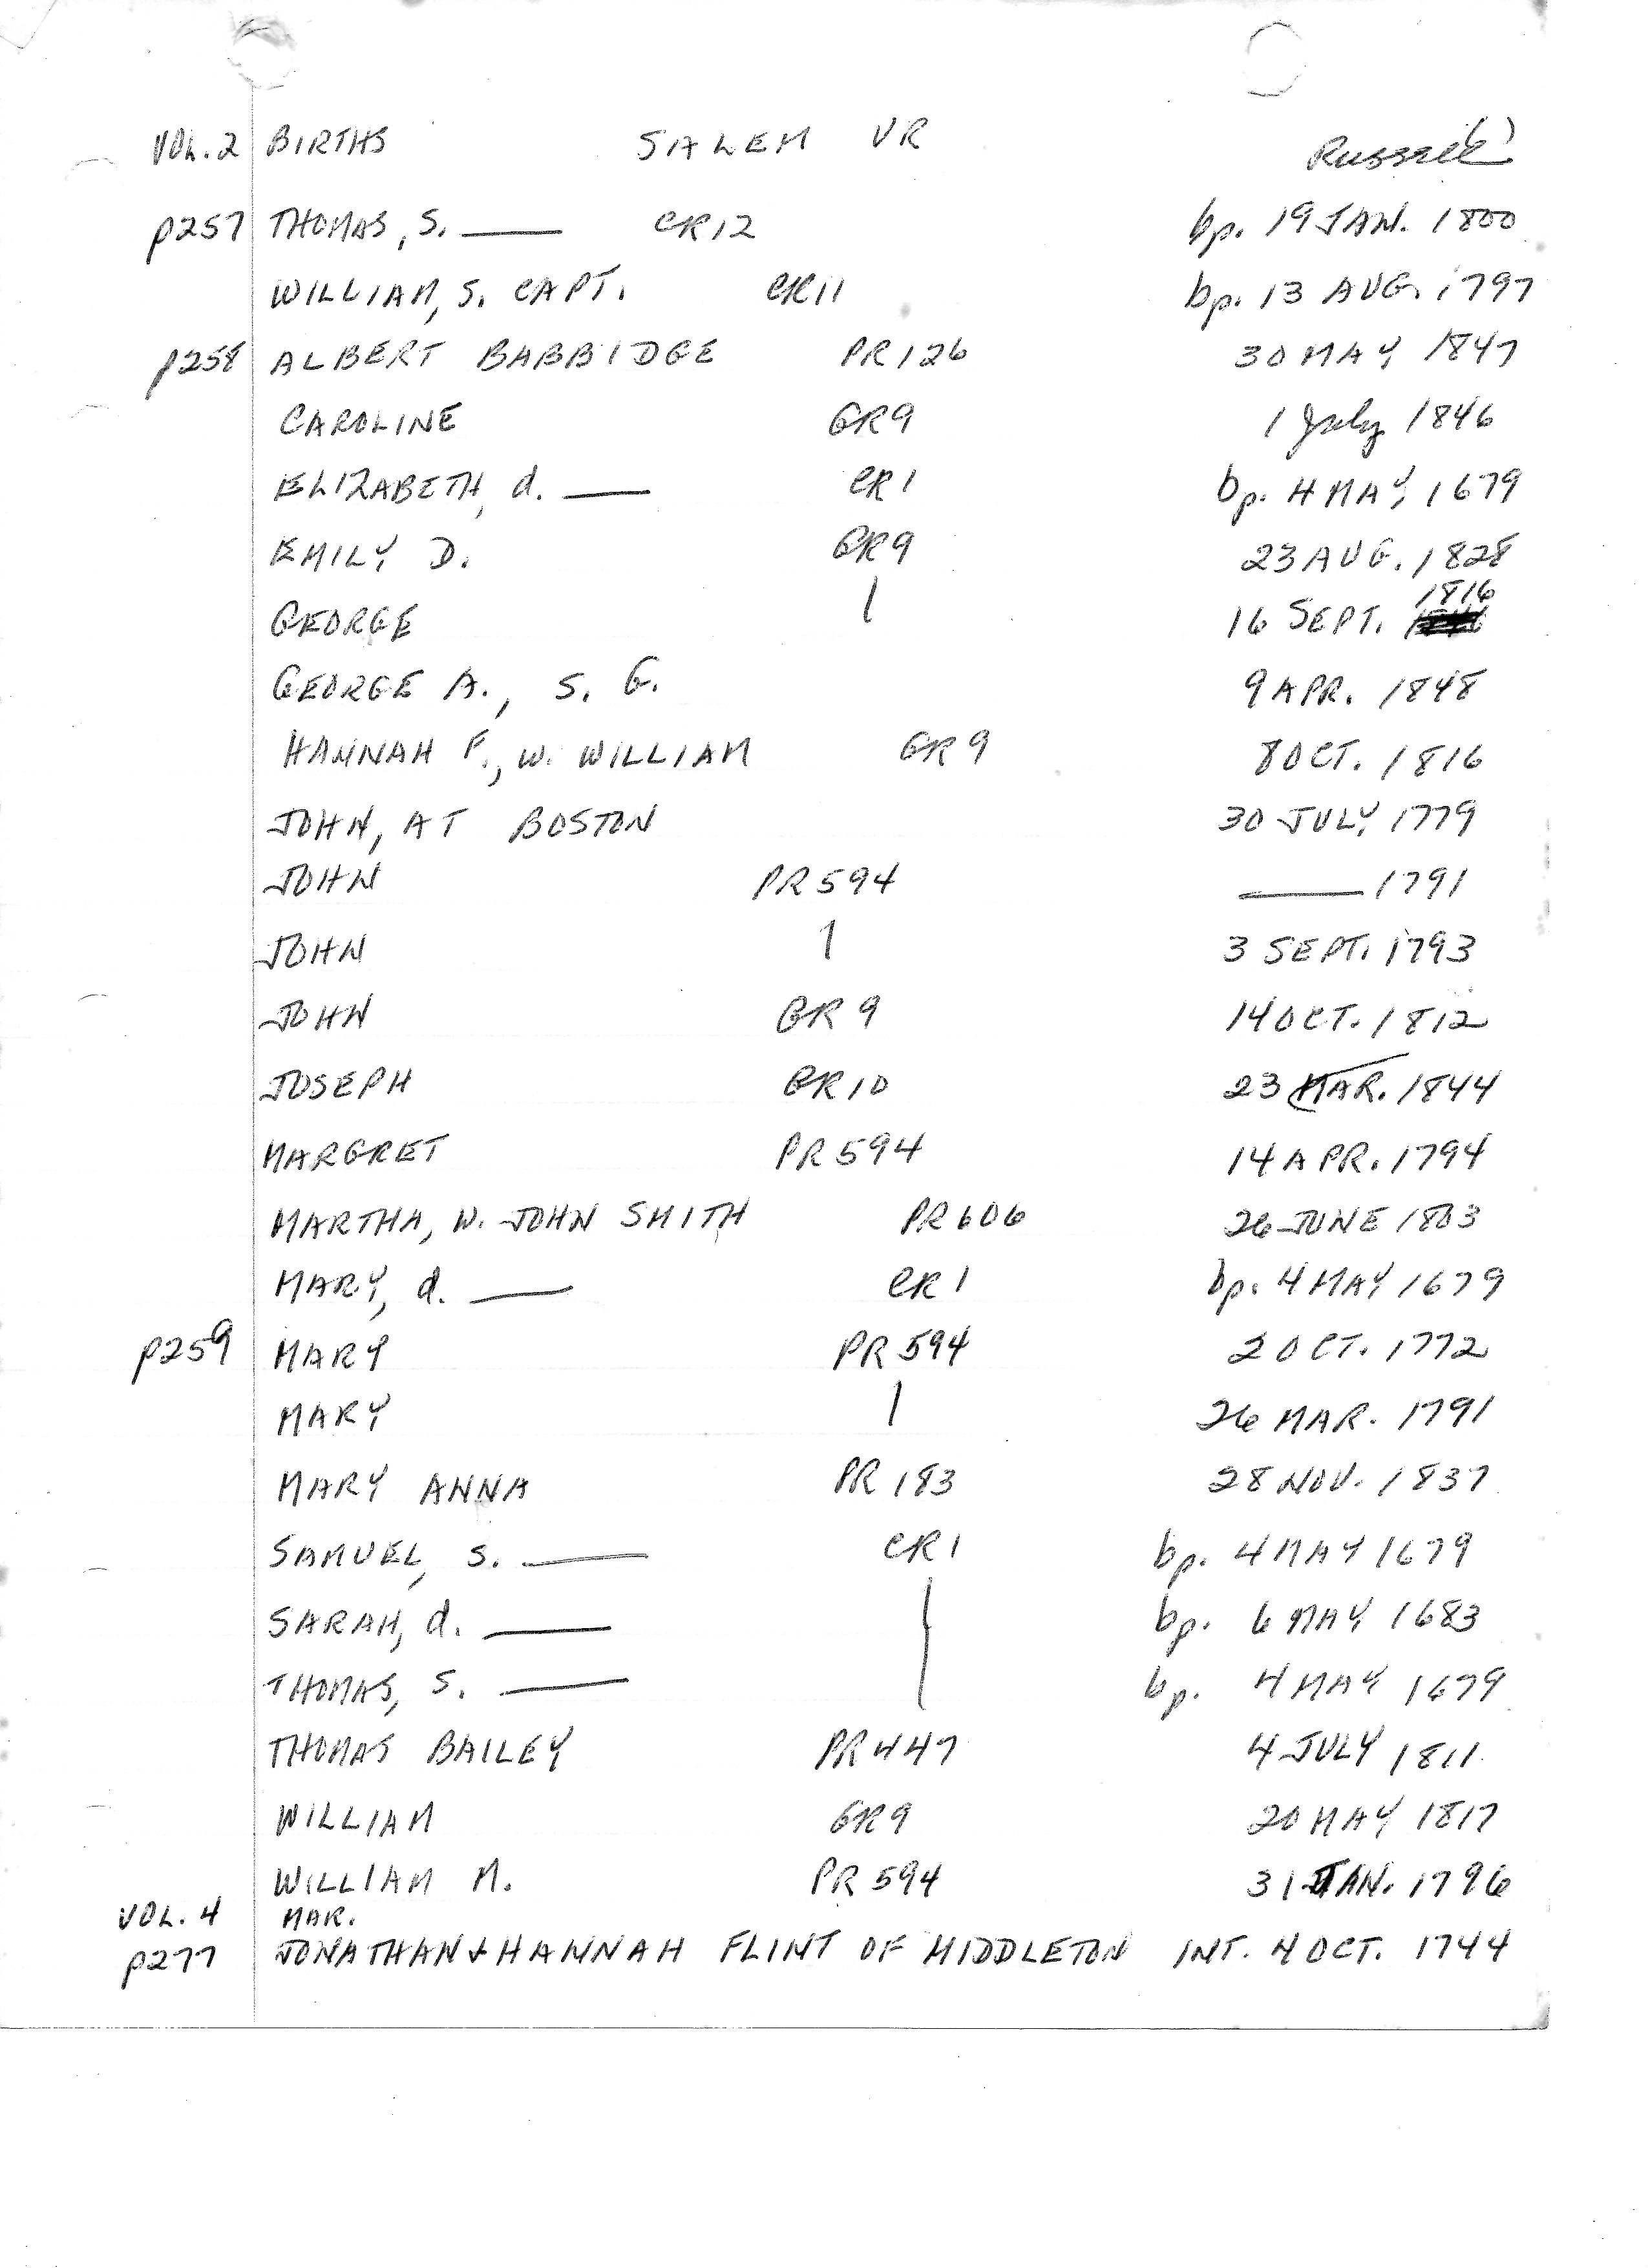 VOL. 2 BIRTHS SALEM VR Russell
p257 THOMAS, S. —— CR12 bp. 19 JAN. 1800
WILLIAM, S. CAPT. CR11 bp. 13 AUG. 1797
p258 ALBERT BABBIDGE PR126 30 MAY 1847
CAROLINE GR9 1 July 1846
ELIZABETH, d. —— CR1 bp. 4 MAY 1679
EMILY D. GR9 23 AUG. 1828
GEORGE | 16 SEPT. 1816
GEORGE A., S. G. 9 APR. 1848
HANNAH F., W. WILLIAM GR9 8 OCT. 1816
JOHN, AT BOSTON 30 JULY 1779
JOHN PR594 —— 1791
JOHN | 3 SEPT. 1793
JOHN GR9 14 OCT. 1812
JOSEPH 23 MAR. 1844
MARGRET PR594 14 APR. 1794
MARTHA, W. JOHN SMITH PR606 26 JUNE 1803
MARY, d. —— CR1 bp. 4 MAY 1679
p259 MARY PR594 2 OCT. 1772
MARY | 26 MAR. 1791
MARY ANNA PR183 28 NOV. 1837
SAMUEL, S. —— CR1 bp. 4 MAY 1679
SARAH, d. —— | bp. 6 MAY 1683
THOMAS, S. —— | bp. 4 MAY 1679
THOMAS BAILEY PR447 4 JULY 1811
WILLIAM GR9 20 MAY 1817
WILLIAM M. PR594 31 JAN. 1796
VOL. 4 MAR.
p277 JONATHAN & HANNAH FLINT OF MIDDLETON INT. 4 OCT. 1744